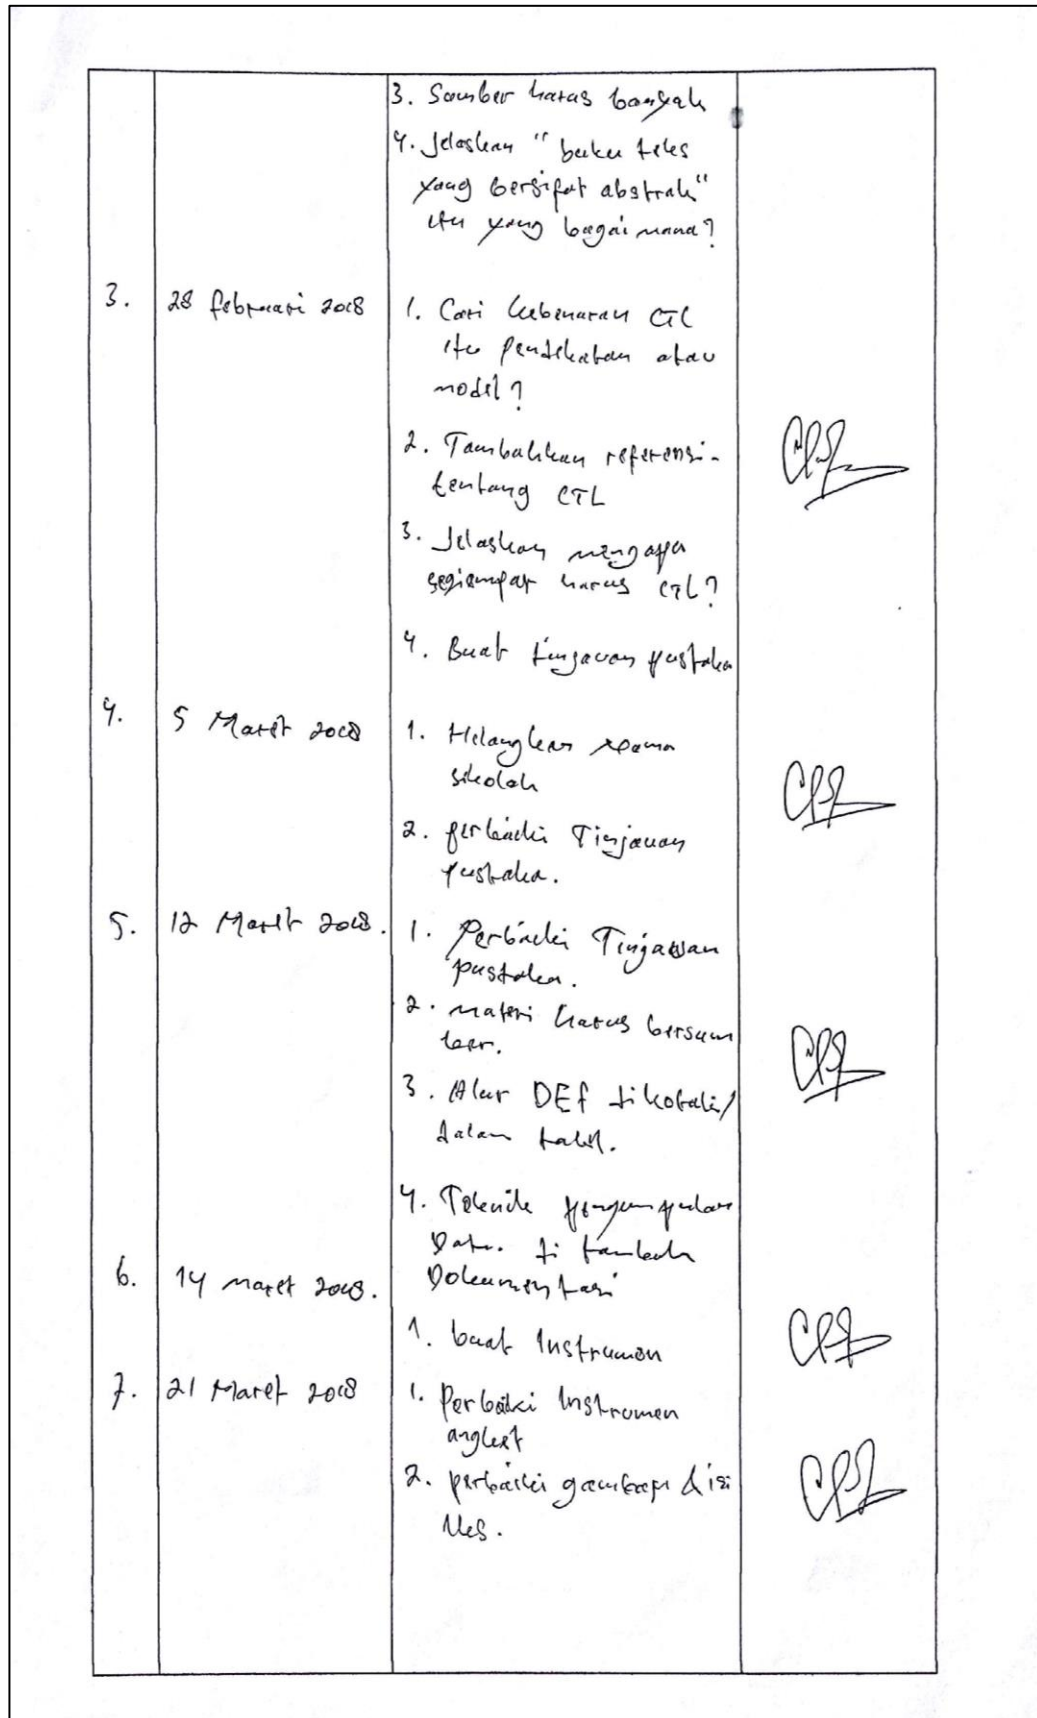 3. Sumber harus banyak
4. Jelaskan "buku teks
yang bersifat abstrak"
itu yang bagaimana?
3. 28 februari 2018 1. Cari kebenaran CTL
itu pendekatan atau
model?
2. Tambahkan referensi
tentang CTL
3. Jelaskan mengapa
segiempat harus CTL?
4. Buat tinjauan pustaka
4. 5 Maret 2018 1. Hilangkan nama
sekolah
2. perbaiki Tinjauan
pustaka.
5. 12 Maret 2018. 1. Perbaiki Tinjauan
pustaka.
2. materi harus bersum
ber.
3. Alur DEf dikotaki/
dalam tabel.
4. Teknik pengumpulan
Data. di tambah
6. 14 maret 2018. Dokumentasi
1. buat Instrumen
7. 21 Maret 2018 1. Perbaiki Instrumen
angket
2. perbaiki gambar & isi